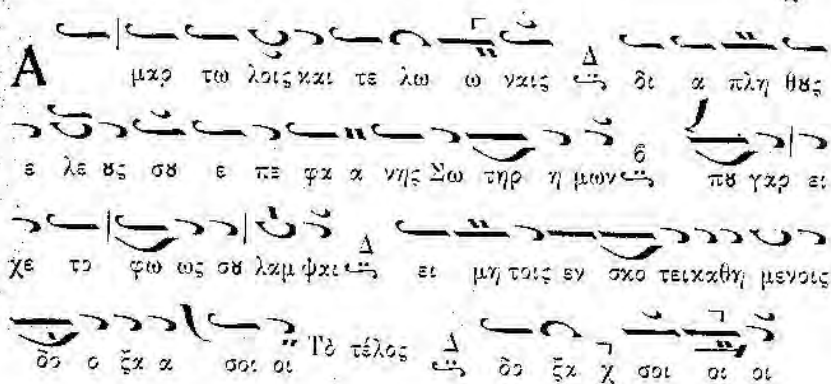 Α μαρ τω λοις και τε λω ω ναις Δ δι α πλη θȣς
ε λε ȣς σȣ ε πε φα α νης Σω τηρ η μων β πȣ γαρ ει
χε το φω ως σȣ λαμ ψαι Δ ει μη τοις εν σκο τει καθη μενοις
δο ο ξα α σοι οι Τὸ τέλος Δ δο ξα χ σοι οι οι